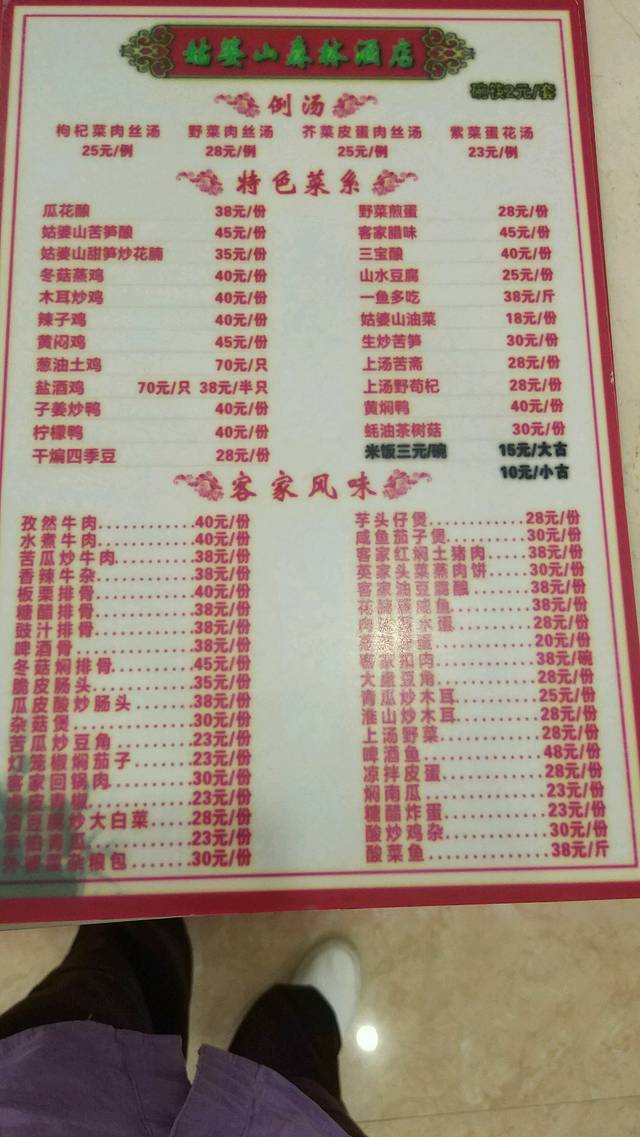 姑婆山森林酒店
碗筷2元/套
例汤
枸杞菜肉丝汤 野菜肉丝汤 芥菜皮蛋肉丝汤 紫菜蛋花汤
25元/例 28元/例 25元/例 23元/例
特色菜系
瓜花酿 38元/份
姑婆山苦笋酿 45元/份
姑婆山甜笋炒花腩 35元/份
冬菇蒸鸡 40元/份
木耳炒鸡 40元/份
辣子鸡 40元/份
黄闷鸡 45元/份
葱油土鸡 70元/只
盐酒鸡 70元/只 38元/半只
子姜炒鸭 40元/份
柠檬鸭 40元/份
干煸四季豆 28元/份
野菜煎蛋 28元/份
客家腊味 45元/份
三宝酿 40元/份
山水豆腐 25元/份
一鱼多吃 38元/斤
姑婆山油菜 18元/份
生炒苦笋 30元/份
上汤苦斋 28元/份
上汤野荀杞 28元/份
黄焖鸭 40元/份
蚝油茶树菇 30元/份
米饭三元/碗 15元/大古
10元/小古
客家风味
孜然牛肉............40元/份
水煮牛肉............40元/份
苦瓜炒牛肉..........38元/份
香辣牛杂............38元/份
板栗排骨............40元/份
糖醋排骨............38元/份
豉汁排骨............38元/份
啤酒骨..............38元/份
冬菇焖排骨..........45元/份
脆皮肠头............35元/份
瓜皮酸炒肠头........38元/份
杂菇煲..............30元/份
苦瓜炒豆角..........23元/份
灯笼椒焖茄子........23元/份
客家回锅肉..........30元/份
皮青椒..............23元/份
炒大白菜............28元/份
青瓜................23元/份
杂粮包..............30元/份
芋头仔煲............28元/份
咸鱼茄子煲..........30元/份
客家红焖土猪肉......38元/份
英家头菜蒸肉饼......30元/份
客家油豆腐酿........38元/份
咸鱼................38元/份
水蛋................28元/份
蛋..................20元/份
扣肉................38元/碗
豆角................28元/份
青瓜炒木耳..........25元/份
淮山炒木耳..........28元/份
上汤野菜............28元/份
啤酒鱼..............48元/份
凉拌皮蛋............28元/份
焖南瓜..............23元/份
糖醋炸蛋............23元/份
酸炒鸡杂............30元/份
酸菜鱼..............38元/斤